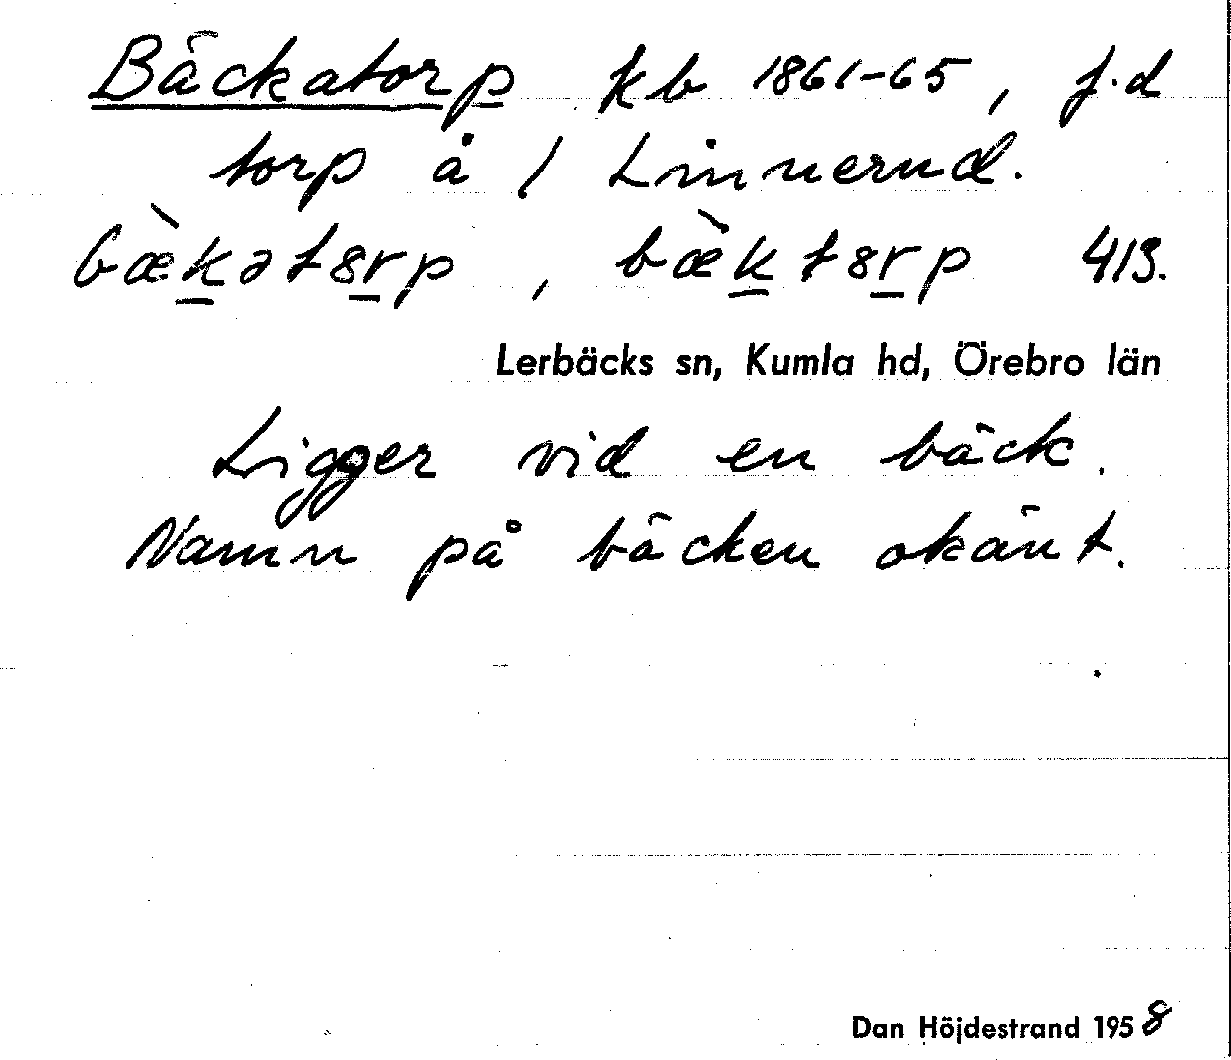 Bäckatorp kb 1861-65, f.d
torp å 1 Linnerud.
bæ̀k̲ətȣr̲p, bæ̀k̲tȣr̲p 413.
Lerbäcks sn, Kumla hd, Örebro län
Ligger vid en bäck.
Namn på bäcken okänt.
Dan Höjdestrand 1958